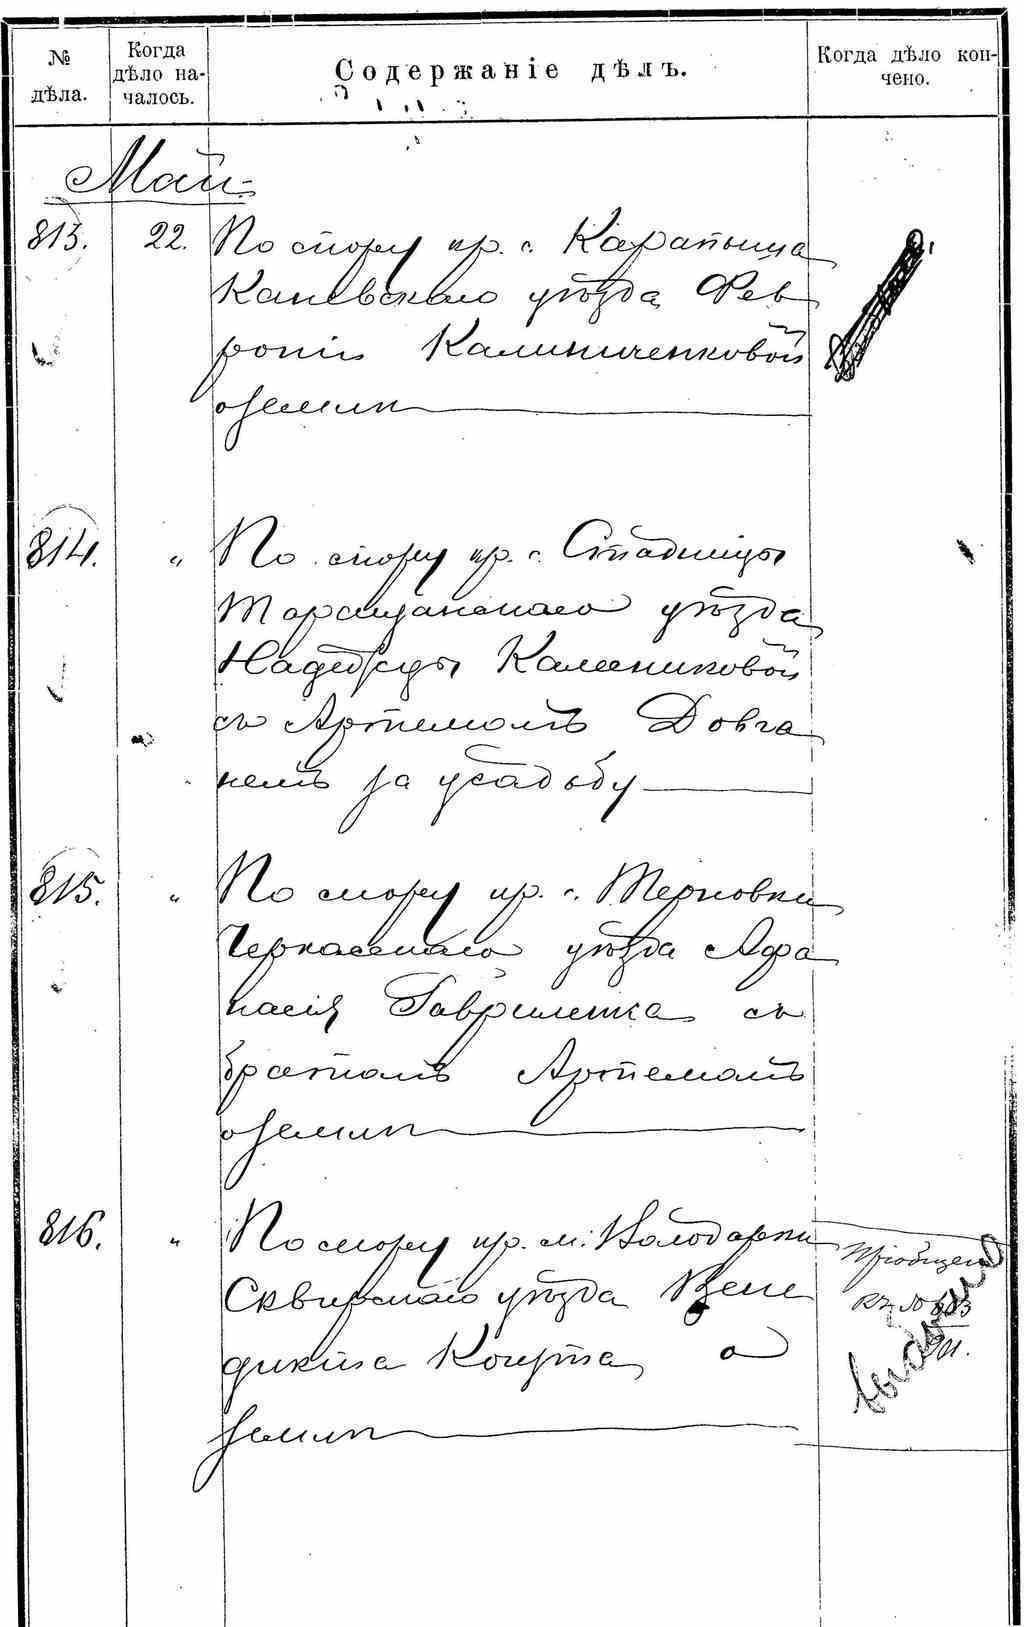 № дѣла.
Когда дѣло на-
чалось.
Содержаніе дѣлъ.
Когда дѣло кон-
чено.
Май
813. 22. По спору кр. с. Карапыша
Каневскаго уѣзда Фев
роніи Калиниченковой
о земли
814. „ По спору кр. с. Стадницы
Таращанскаго уѣзда
Надежды Калениковой
съ Артемомъ Довга
немъ за усадьбу
815. „ По спору кр. с. Терновки
Черкасскаго уѣзда Афа
насія Гавриленка съ
братомъ Артемомъ
о земли
816. „ По спору кр. м. Володарки
Сквирскаго уѣзда Вене
дикта Когута о
земли
Пріобщено
къ №